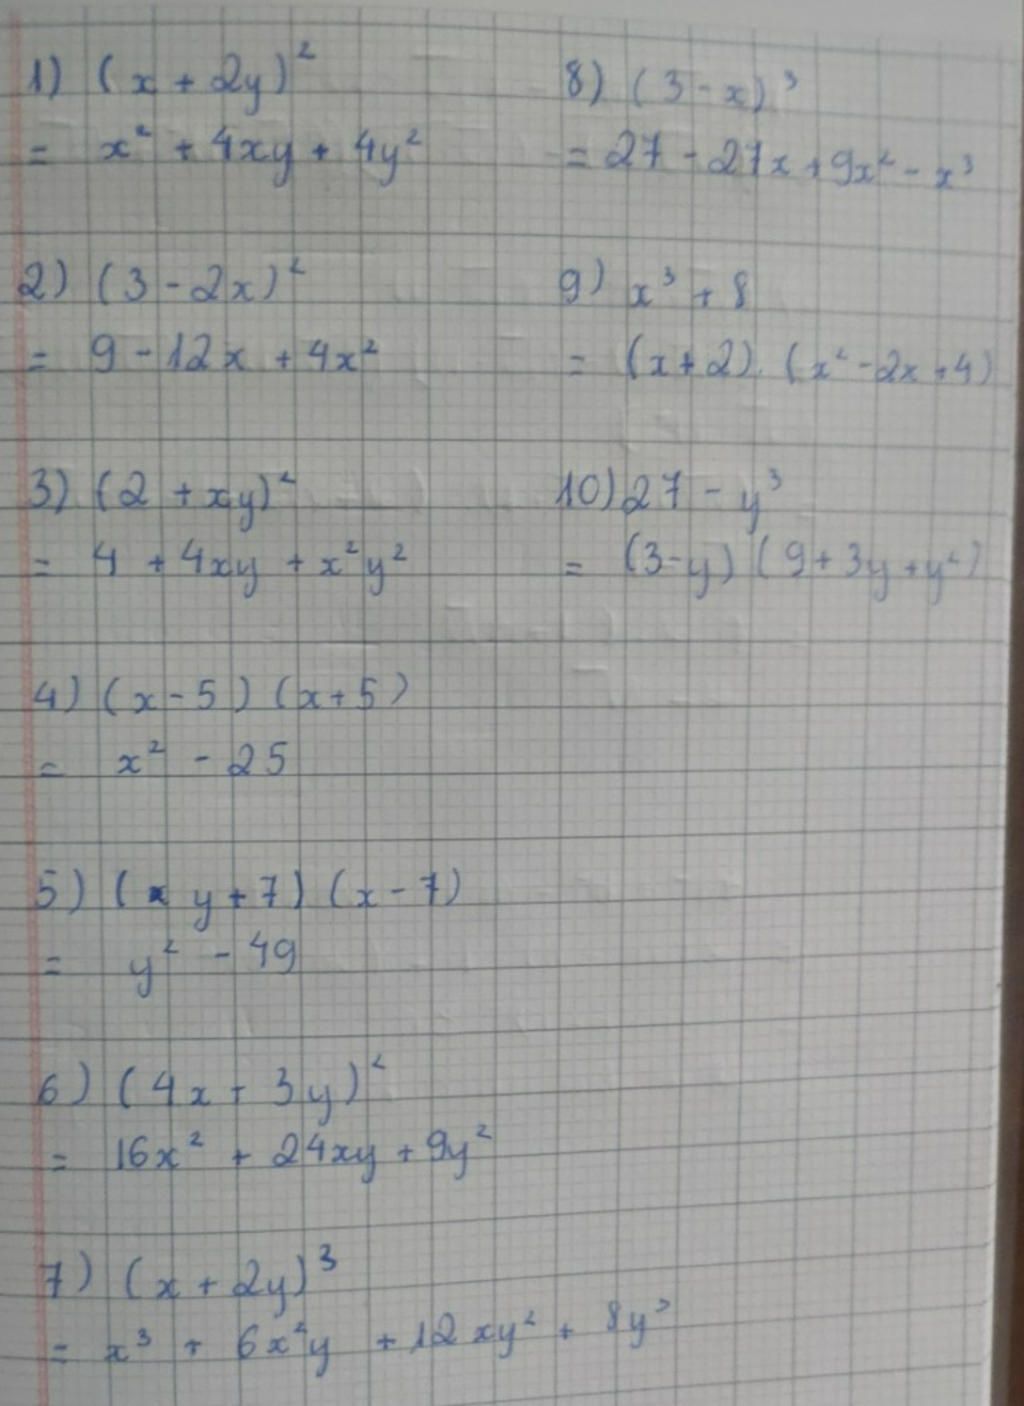 1) (x + 2y)²
= x² + 4xy + 4y²
2) (3 - 2x)²
= 9 - 12x + 4x²
3) (2 + xy)²
= 4 + 4xy + x²y²
4) (x - 5) (x + 5)
= x² - 25
5) (y + 7) (x - 7)
= y² - 49
6) (4x + 3y)²
= 16x² + 24xy + 9y²
7) (x + 2y)³
= x³ + 6x²y + 12xy² + 8y³
8) (3 - x)³
= 27 - 27x + 9x² - x³
9) x³ + 8
= (x + 2). (x² - 2x + 4)
10) 27 - y³
= (3 - y) (9 + 3y + y²)